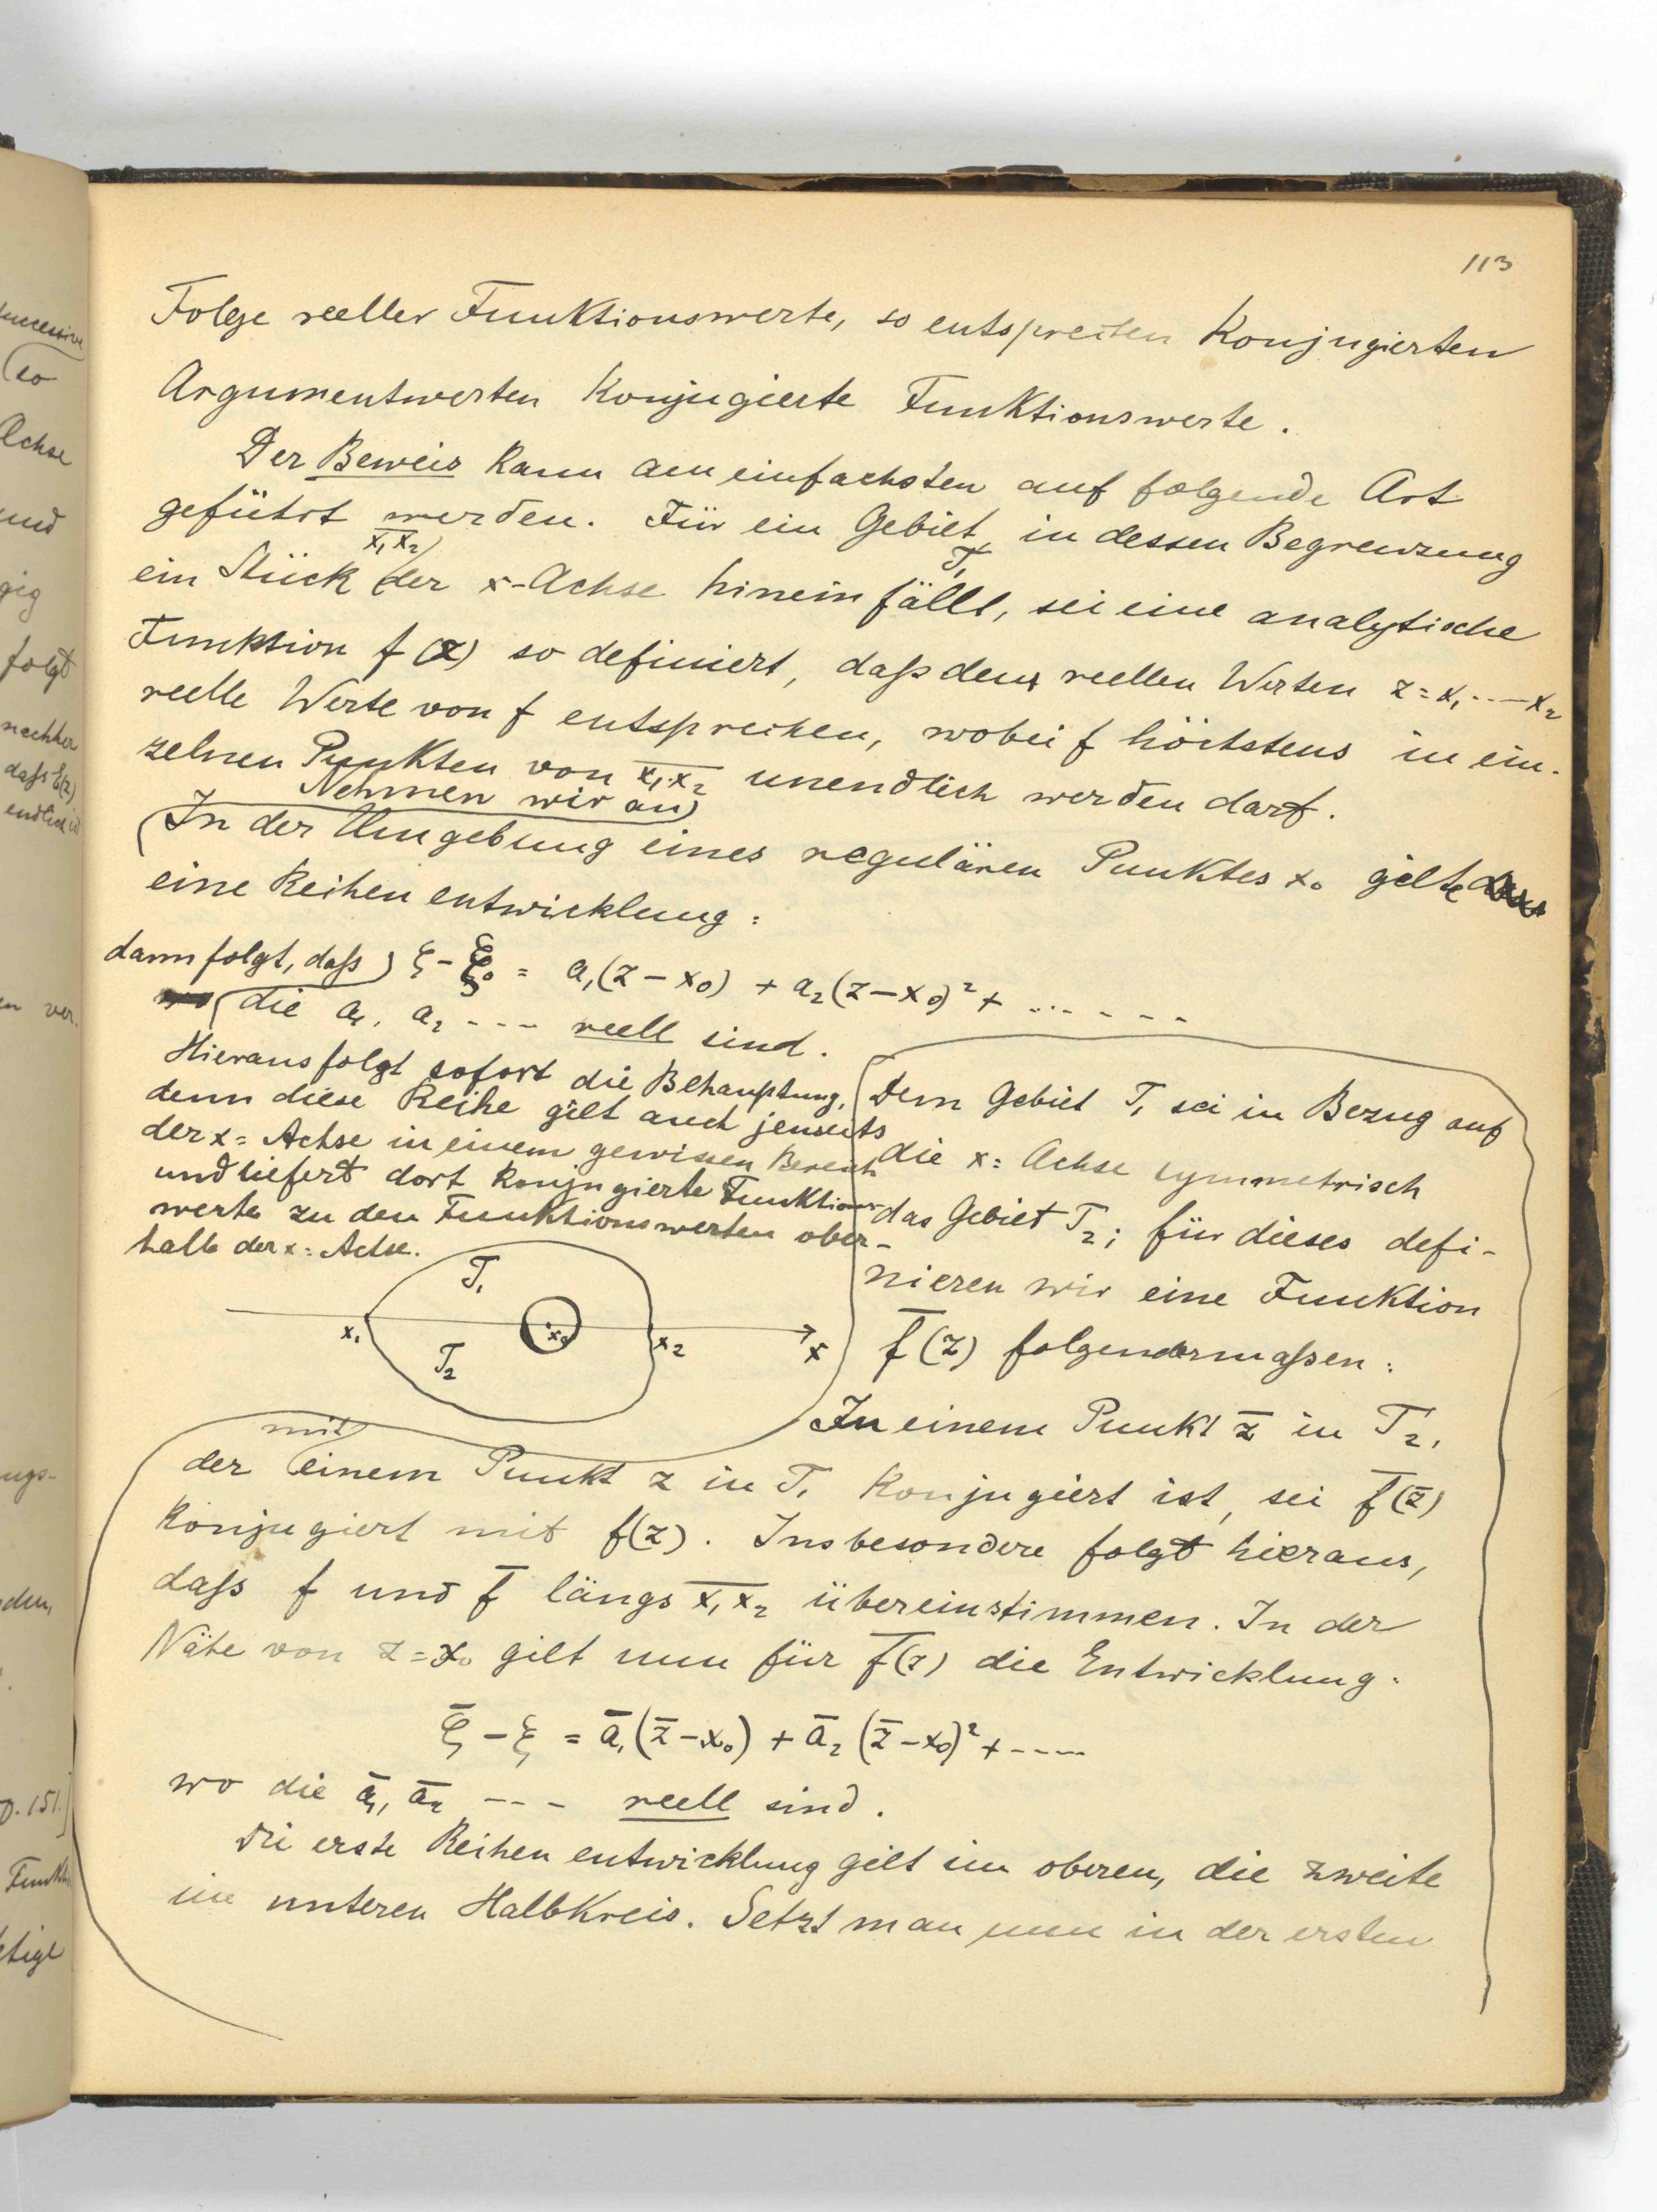 113
Folge reeller Funktionswerte, so entsprechen konjugierten
Argumentwerten konjugierte Funktionswerte.
Der Beweis kann am einfachsten auf folgende Art
geführt werden. Für ein Gebiet T₁, in dessen Begrenzung
ein Stück x̅₁x̅₂ der x-Achse hineinfällt, sei eine analytische
Funktion f(z) so definiert, daß den reellen Werten z = x₁ ... x₂
reelle Werte von f entsprechen, wobei f höchstens in ein-
zelnen Punkten von x̅₁x̅₂ unendlich werden darf.
Nehmen wir an
In der Umgebung eines regulären Punktes x₀ gelte
eine Reihenentwicklung:
dann folgt, daß ξ - ξ₀ = a₁(z - x₀) + a₂(z - x₀)² + ......
die a₁, a₂ --- reell sind.
Hieraus folgt sofort die Behauptung,
denn diese Reihe gilt auch jenseits
der x=Achse in einem gewissen Bereich
und liefert dort konjugierte Funktions-
werte zu den Funktionswerten ober-
halb der x=Achse.
T₁
x₁ x₀ x₂ x
T₂
Dem Gebiet T₁ sei in Bezug auf
die x=Achse symmetrisch
das Gebiet T₂; für dieses defi-
nieren wir eine Funktion
f̅(z) folgendermaßen:
In einem Punkt z̅ in T₂,
der mit einem Punkt z in T₁ konjugiert ist, sei f̅(z̅)
konjugiert mit f(z). Insbesondere folgt hieraus,
daß f und f̅ längs x̅₁x̅₂ übereinstimmen. In der
Nähe von z = x₀ gilt nun für f̅(z) die Entwicklung:
ξ̅ - ξ = a̅₁(z̅ - x₀) + a̅₂(z̅ - x₀)² + ----
wo die a̅₁, a̅₂ --- reell sind.
Die erste Reihenentwicklung gilt im oberen, die zweite
im unteren Halbkreis. Setzt man nun in der ersten
so
Achse
und
gig
folgt
nachher
daß ξ(z)
endlich ist
p. 151.]